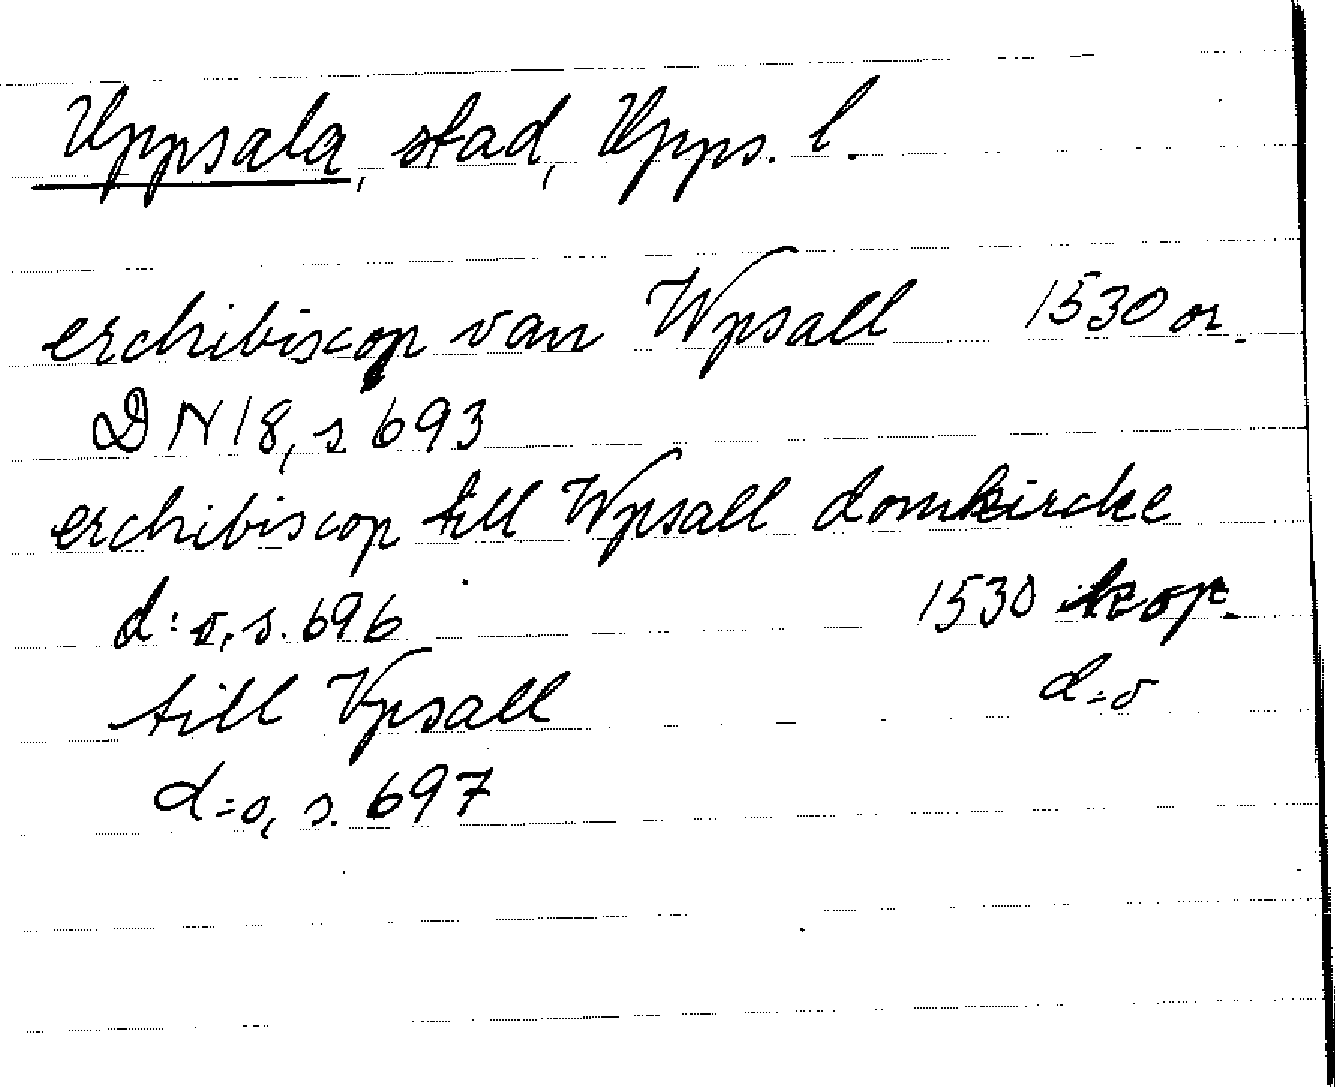 Uppsala, stad, Upps. l.
erchibiscop van Wpsall 1530 or.
DN 18, s 693
erchibiscop till Wpsall domkircke
d:o, s. 696 1530 kop.
till Vpsall d=o
d=o, s. 697